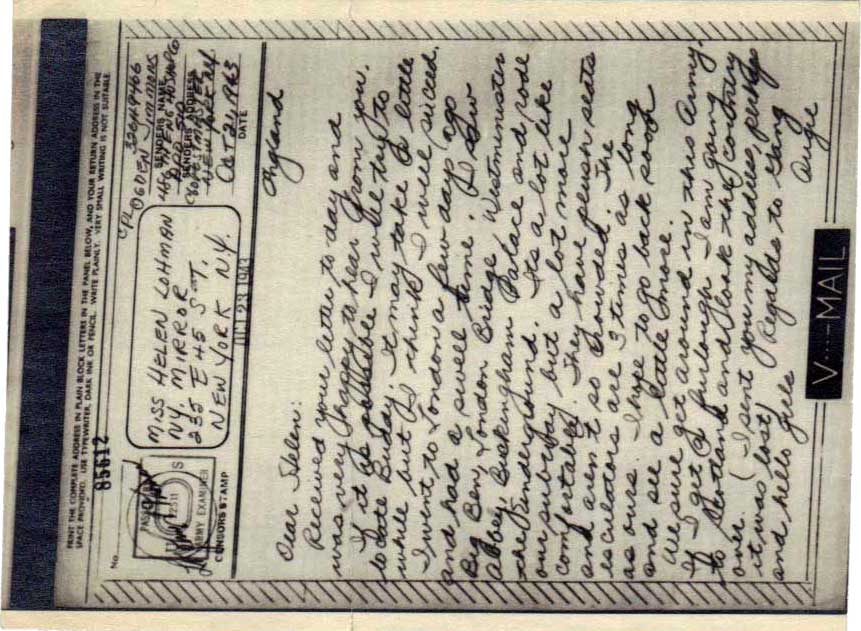 PRINT THE COMPLETE ADDRESS IN PLAIN BLOCK LETTERS IN THE PANEL BELOW, AND YOUR RETURN ADDRESS IN THE
SPACE PROVIDED. USE TYPEWRITER, DARK INK OR PENCIL. WRITE PLAINLY. VERY SMALL WRITING IS NOT SUITABLE.
85612
No.
ARMY EXAMINER
CENSOR'S STAMP
MISS HELEN LOHMAN
NY, MIRROR
235 E 45 ST.
NEW YORK N.Y.
CPL OGDEN
SENDER'S NAME
SENDER'S ADDRESS
NEW YORK N.Y.
OCT 21, 1943
DATE
OCT 23 1943
England
Dear Helen:
Received your letter to day and
was very happy to hear from you.
If it is possible I will try to
locate Buddy. It may take a little
while but I think I will suceed.
I went to London a few days ago
and had a swell time. I saw
Big Ben, London Bridge Westminister
Abbey Buckingham Palace and rode
the Underground. Its a lot like
our subway but a lot more
comfortable. They have plush seats
and aren't so crowded. The
esculators are 3 times as long
as ours. I hope to go back soon
and see a little more.
We sure get around in this Army.
If I get a furlough I am going
to Scotland and look the country
over. (I sent you my address, perhaps
it was lost) Regards to Gang
and hello girls
Augie
V···—MAIL